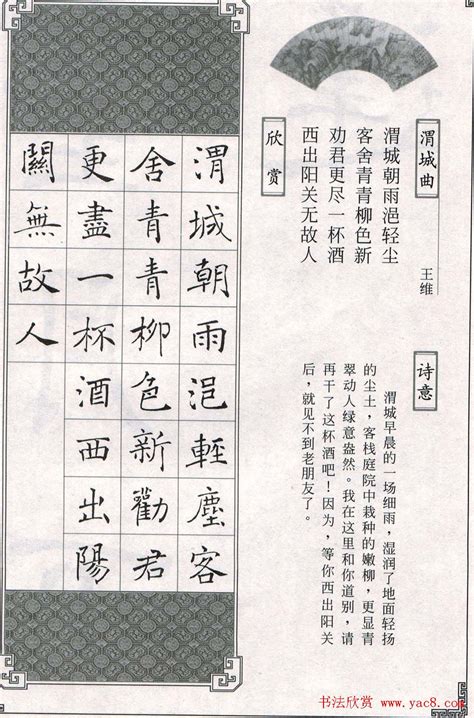 渭城曲
王维
渭城朝雨浥轻尘
客舍青青柳色新
劝君更尽一杯酒
西出阳关无故人
欣赏
诗意
渭城早晨的一场细雨，湿润了地面轻扬
的尘土，客栈庭院中栽种的嫩柳，更显青
翠动人绿意盎然。我在这里和你道别，请
再干了这杯酒吧！因为，等你西出阳关
后，就见不到老朋友了。
渭城朝雨浥輕塵客
舍青青柳色新勸君
更盡一杯酒西出陽
關無故人
书法欣赏 www.yac8.com